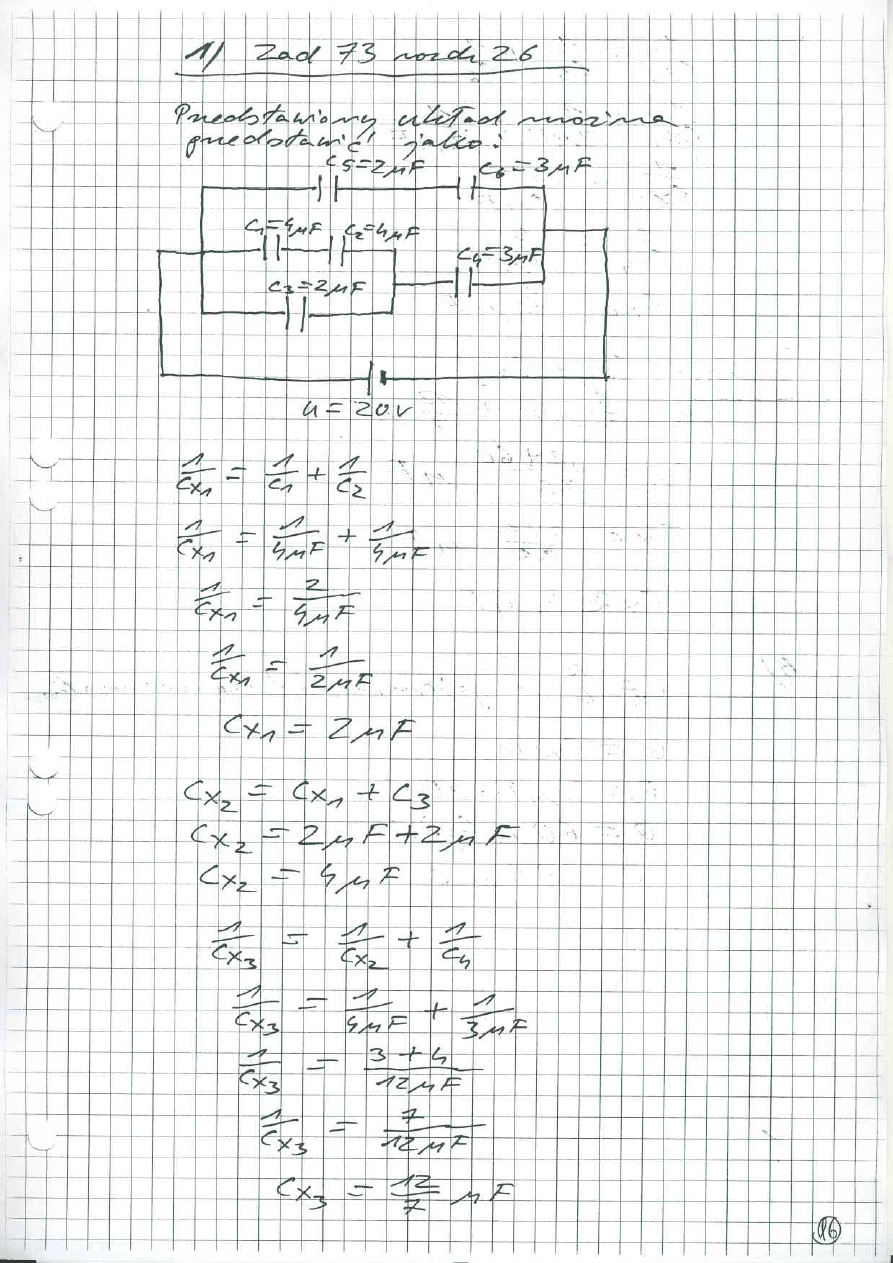 1) Zad 73 rozdz 26
Przedstawiony układ można
przedstawić jako:
C5=2μF C6=3μF
C1=4μF C2=4μF
C4=3μF
C3=2μF
U=20V
1/Cx1 = 1/C1 + 1/C2
1/Cx1 = 1/4μF + 1/4μF
1/Cx1 = 2/4μF
1/Cx1 = 1/2μF
Cx1 = 2μF
Cx2 = Cx1 + C3
Cx2 = 2μF + 2μF
Cx2 = 4μF
1/Cx3 = 1/Cx2 + 1/C4
1/Cx3 = 1/4μF + 1/3μF
1/Cx3 = 3+4/12μF
1/Cx3 = 7/12μF
Cx3 = 12/7 μF